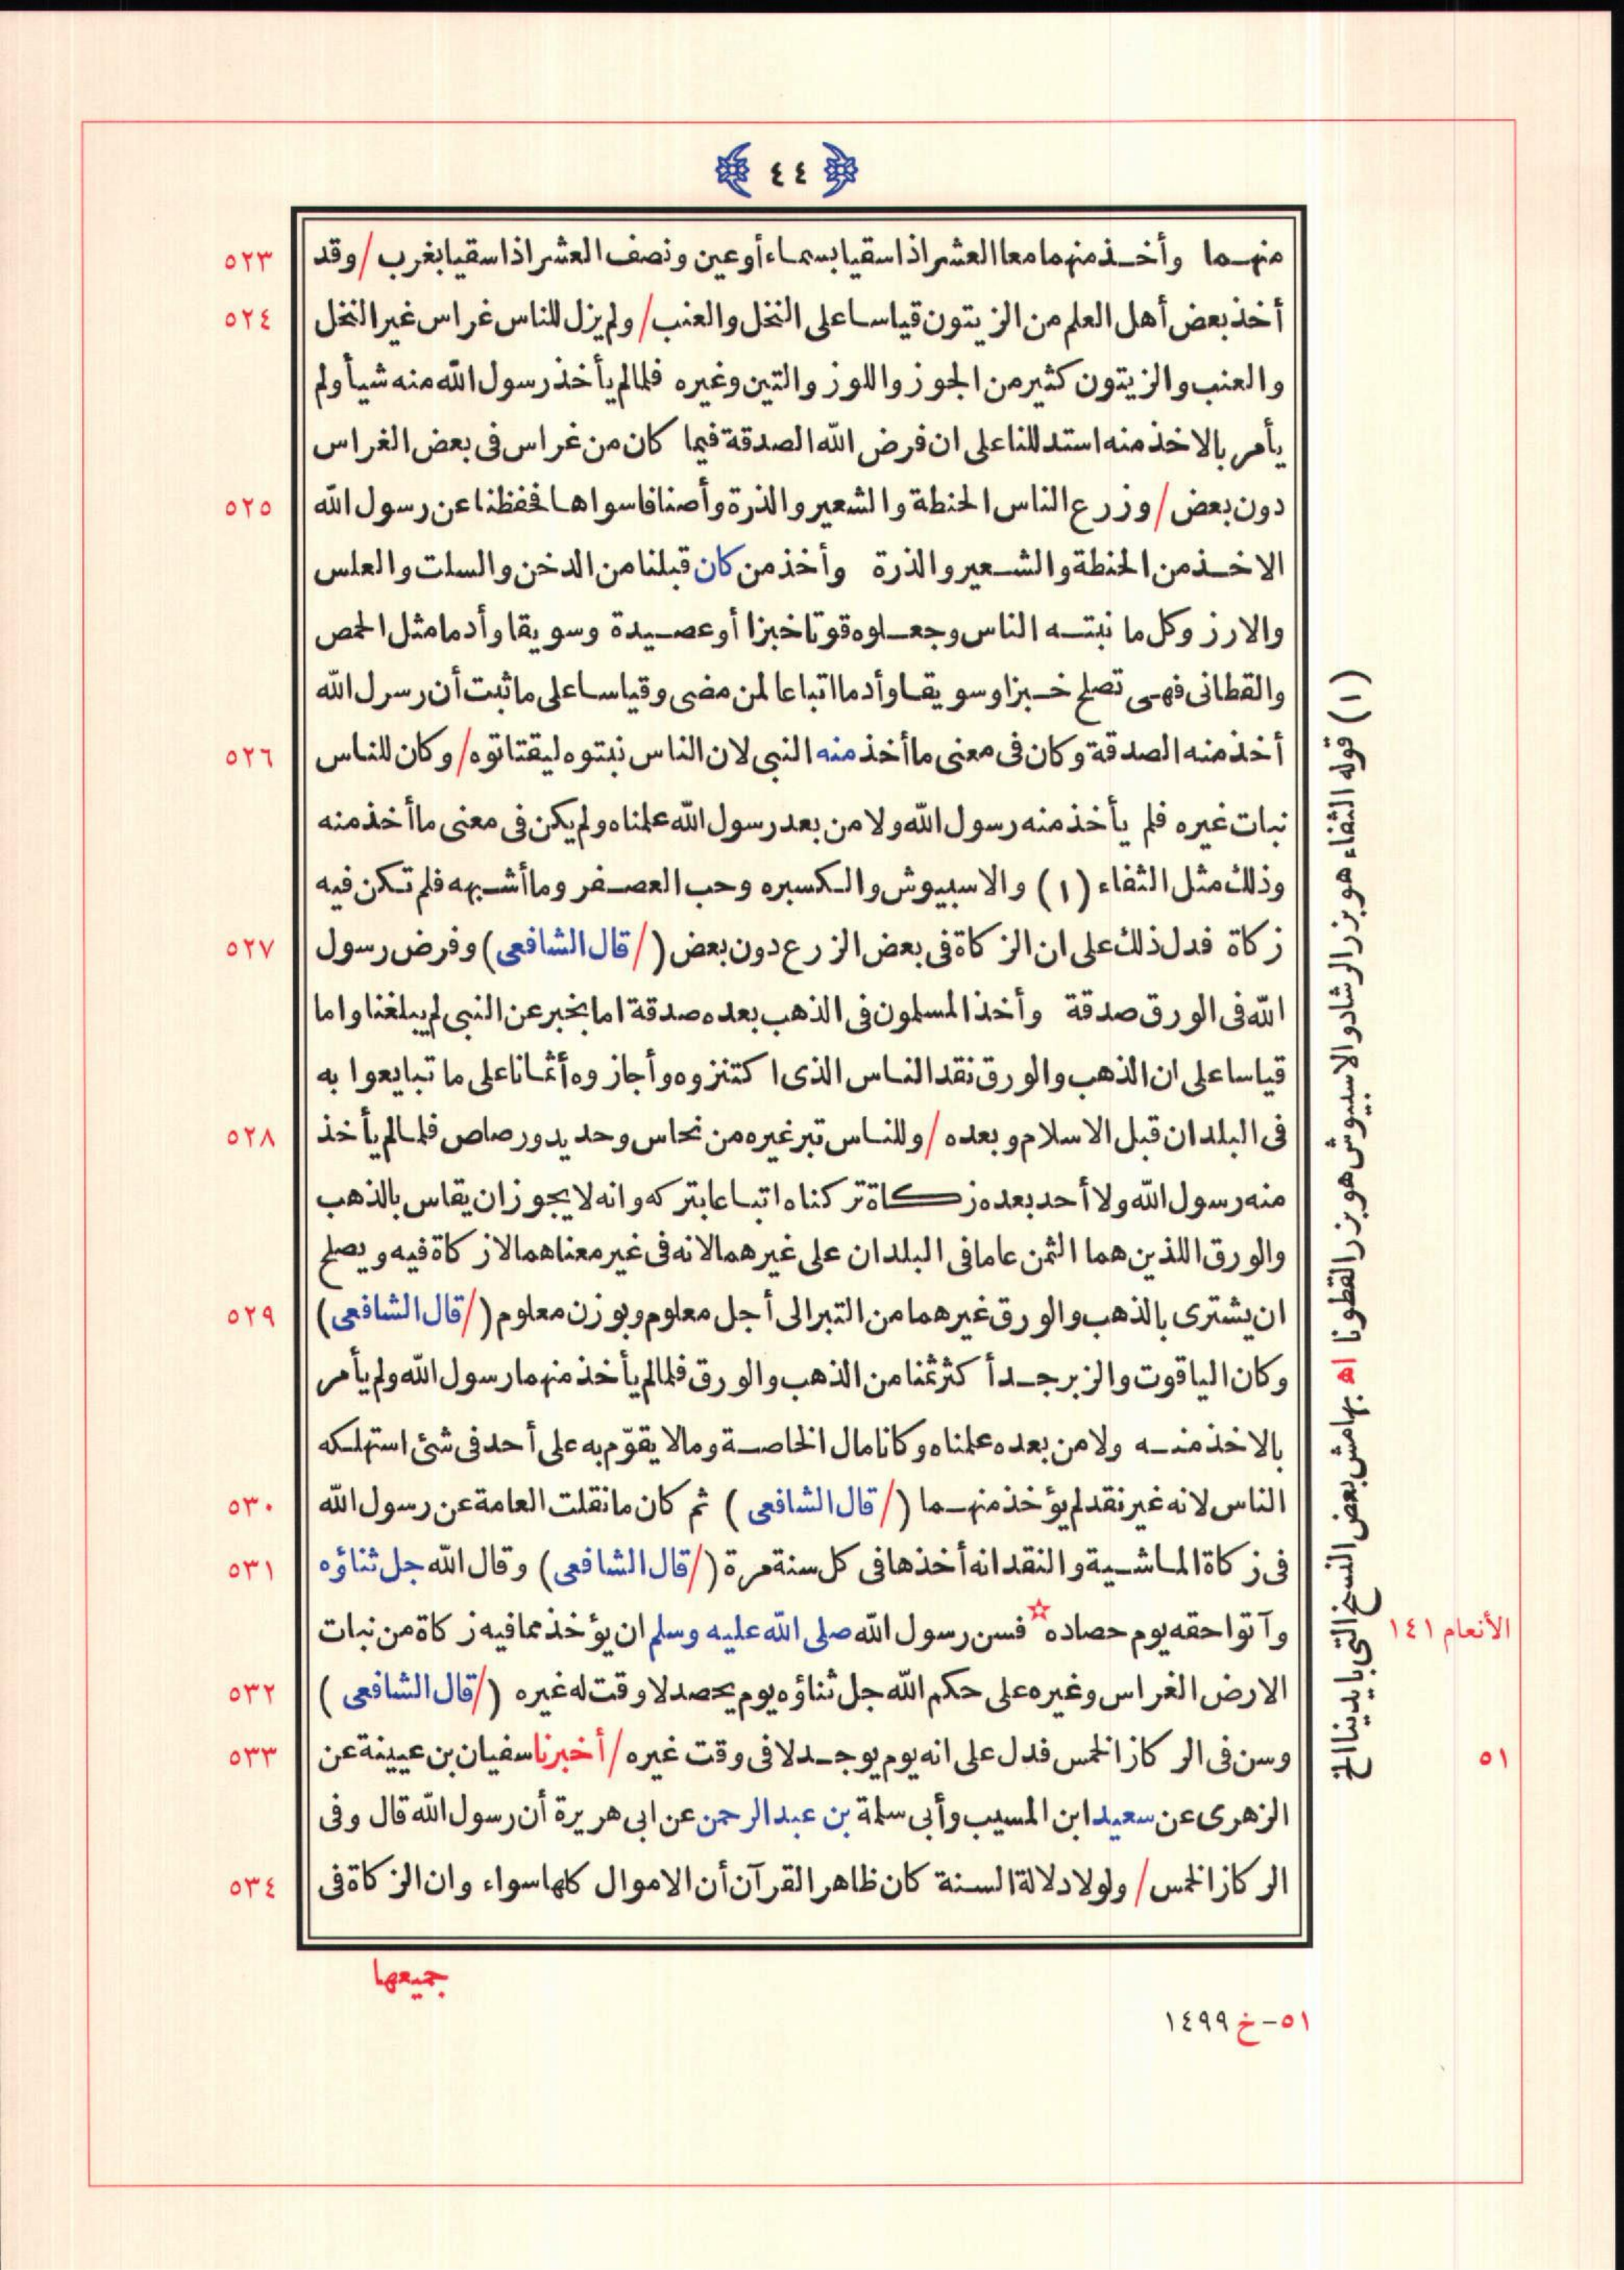 ٤٤
منهما وأخذ منهما معا العشر اذا سقيا بسماء أوعين ونصف العشر اذا سقيا بغرب / وقد ٥٢٣
أخذ بعض أهل العلم من الزيتون قياسا على النخل والعنب / ولم يزل للناس غراس غير النخل ٥٢٤
والعنب والزيتون كثير من الجوز واللوز والتين وغيره فلما لم يأخذ رسول الله منه شيأ ولم
يأمر بالاخذ منه استدللنا على ان فرض الله الصدقة فيما كان من غراس فى بعض الغراس
دون بعض / وزرع الناس الحنطة والشعير والذرة وأصنافا سواها فحفظنا عن رسول الله ٥٢٥
الاخذ من الحنطة والشعير والذرة وأخذ من كان قبلنا من الدخن والسلت والعلس
والارز وكل ما نبته الناس وجعلوه قوتا خبزا أو عصيدة وسويقا وأدما مثل الحمص
والقطانى فهى تصلح خبزا وسويقا وأدما اتباعا لمن مضى وقياسا على ما ثبت أن رسرل الله
أخذ منه الصدقة وكان فى معنى ما أخذ منه النبى لان الناس نبتوه ليقتاتوه / وكان للناس ٥٢٦
نبات غيره فلم يأخذ منه رسول الله ولا من بعد رسول الله علمناه ولم يكن فى معنى ما أخذ منه
وذلك مثل الثفاء (١) والاسبيوش والكسبره وحب العصفر وما أشبهه فلم تكن فيه
زكاة فدل ذلك على ان الزكاة فى بعض الزرع دون بعض (/ قال الشافعى) وفرض رسول ٥٢٧
الله فى الورق صدقة وأخذ المسلمون فى الذهب بعده صدقة اما بخبر عن النبى لم يبلغنا واما
قياسا على ان الذهب والورق نقد الناس الذى اكتنزوه وأجازوه أثمانا على ما تبايعوا به
فى البلدان قبل الاسلام وبعده / وللناس تبر غيره من نحاس وحديد ورصاص فلما لم يأخذ ٥٢٨
منه رسول الله ولا أحد بعده زكاة تركناه اتباعا بتركه وانه لا يجوز ان يقاس بالذهب
والورق اللذين هما الثمن عاما فى البلدان على غيرهما لانه فى غير معناهما لا زكاة فيه ويصلح
ان يشترى بالذهب والورق غيرهما من التبر الى أجل معلوم وبوزن معلوم (/ قال الشافعى) ٥٢٩
وكان الياقوت والزبرجد أكثر ثمنا من الذهب والورق فلما لم يأخذ منهما رسول الله ولم يأمر
بالاخذ منه ولا من بعده علمناه وكانا مال الخاصة وما لا يقوّم به على أحد فى شئ استهلكه
الناس لانه غير نقد لم يؤخذ منهما (/ قال الشافعى) ثم كان ما نقلت العامة عن رسول الله ٥٣٠
فى زكاة الماشية والنقد انه أخذها فى كل سنة مرة (/ قال الشافعى) وقال الله جل ثناؤه ٥٣١
وآتوا حقه يوم حصاده ☆ فسن رسول الله صلى الله عليه وسلم ان يؤخذ مما فيه زكاة من نبات
الارض الغراس وغيره على حكم الله جل ثناؤه يوم يحصد لا وقت له غيره (/ قال الشافعى) ٥٣٢
وسن فى الركاز الخمس فدل على انه يوم يوجد لا فى وقت غيره / أخبرنا سفيان بن عيينة عن ٥٣٣
الزهرى عن سعيد ابن المسيب وأبى سلمة بن عبد الرحمن عن ابى هريرة أن رسول الله قال وفى
الركاز الخمس / ولولا دلالة السنة كان ظاهر القرآن أن الاموال كلها سواء وان الزكاة فى ٥٣٤
جميعها
(١) قوله الثفاء هو بزر الرشاد والاسبيوش هو بزر القطونا اه بهامش بعض النسخ التى بايدينا الخ
الأنعام ١٤١
٥١
٥١-خ ١٤٩٩